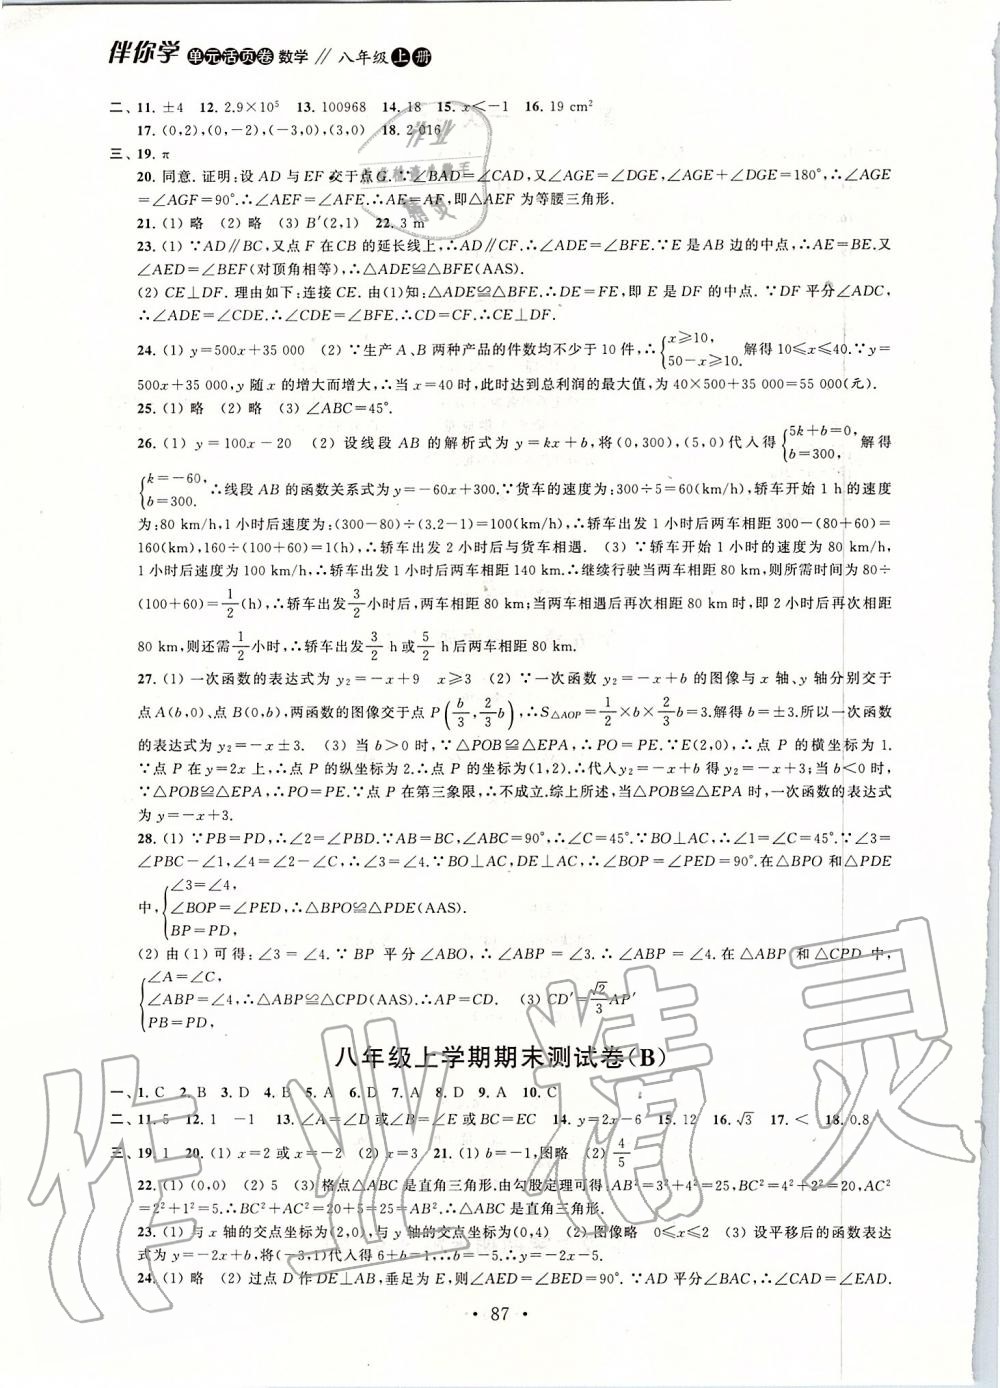 伴你学 单元活页卷 数学 // 八年级 上 册
二、11. ±4 12. 2.9×10⁵ 13. 100968 14. 18 15. x≤-1 16. 19 cm²
17. (0,2),(0,-2),(-3,0),(3,0) 18. 2 016
三、19. π
20. 同意. 证明:设 AD 与 EF 交于点 G.∵∠BAD=∠CAD,又∠AGE=∠DGE,∠AGE+∠DGE=180°,∴∠AGE
=∠AGF=90°.∴∠AEF=∠AFE.∴AE=AF,即△AEF 为等腰三角形.
21. (1) 略 (2) 略 (3) B′(2,1) 22. 3 m
23. (1) ∵AD∥BC,又点 F 在 CB 的延长线上,∴AD∥CF.∴∠ADE=∠BFE.∵E 是 AB 边的中点,∴AE=BE.又
∠AED=∠BEF(对顶角相等),∴△ADE≌△BFE(AAS).
(2) CE⊥DF. 理由如下:连接 CE. 由(1)知:△ADE≌△BFE,∴DE=FE,即 E 是 DF 的中点. ∵DF 平分∠ADC,
∴∠ADE=∠CDE.∴∠CDE=∠BFE.∴CD=CF.∴CE⊥DF.
24. (1) y=500x+35 000 (2) ∵生产 A、B 两种产品的件数均不少于 10 件,∴{x≥10, 50-x≥10. 解得 10≤x≤40.∵y=
500x+35 000,y 随 x 的增大而增大,∴当 x=40 时,此时达到总利润的最大值,为 40×500+35 000=55 000(元).
25. (1) 略 (2) 略 (3) ∠ABC=45°.
26. (1) y=100x-20 (2) 设线段 AB 的解析式为 y=kx+b,将(0,300),(5,0)代入得{5k+b=0, b=300, 解得
{k=-60, b=300. ∴线段 AB 的函数关系式为 y=-60x+300.∵货车的速度为:300÷5=60(km/h),轿车开始 1 h 的速度
为:80 km/h,1 小时后速度为:(300-80)÷(3.2-1)=100(km/h),∴轿车出发 1 小时后两车相距 300-(80+60)=
160(km),160÷(100+60)=1(h),∴轿车出发 2 小时后与货车相遇. (3) ∵轿车开始 1 小时的速度为 80 km/h,
1 小时后速度为 100 km/h,∴轿车出发 1 小时后两车相距 140 km.∴继续行驶当两车相距 80 km,则所需时间为 80÷
(100+60)=1/2(h),∴轿车出发3/2小时后,两车相距 80 km;当两车相遇后再次相距 80 km 时,即 2 小时后再次相距
80 km,则还需1/2小时,∴轿车出发3/2 h 或5/2 h 后两车相距 80 km.
27. (1) 一次函数的表达式为 y₂=-x+9 x≥3 (2) ∵一次函数 y₂=-x+b 的图像与 x 轴、y 轴分别交于
点 A(b,0)、点 B(0,b),两函数的图像交于点 P(b/3,2/3b),∴S△AOP=1/2×b×2/3b=3.解得 b=±3.所以一次函数
的表达式为 y₂=-x±3. (3) 当 b>0 时,∵△POB≌△EPA,∴PO=PE.∵E(2,0),∴点 P 的横坐标为 1.
∵点 P 在 y=2x 上,∴点 P 的纵坐标为 2.∴点 P 的坐标为(1,2).∴代入y₂=-x+b 得 y₂=-x+3;当 b<0 时,
∵△POB≌△EPA,∴PO=PE.∵点 P 在第三象限,∴不成立.综上所述,当△POB≌△EPA 时,一次函数的表达式
为 y=-x+3.
28. (1) ∵PB=PD,∴∠2=∠PBD.∵AB=BC,∠ABC=90°,∴∠C=45°.∵BO⊥AC,∴∠1=∠C=45°.∵∠3=
∠PBC-∠1,∠4=∠2-∠C,∴∠3=∠4.∵BO⊥AC,DE⊥AC,∴∠BOP=∠PED=90°.在△BPO 和△PDE
中,{∠3=∠4, ∠BOP=∠PED, BP=PD, ∴△BPO≌△PDE(AAS).
(2) 由(1)可得:∠3=∠4.∵BP 平分∠ABO,∴∠ABP=∠3.∴∠ABP=∠4.在△ABP 和△CPD 中,
{∠A=∠C, ∠ABP=∠4, PB=PD, ∴△ABP≌△CPD(AAS).∴AP=CD. (3) CD′=√2/3AP′
八年级上学期期末测试卷(B)
一、1. C 2. B 3. D 4. B 5. A 6. D 7. A 8. D 9. A 10. C
二、11. 5 12. 1 -1 13. ∠A=∠D 或∠B=∠E 或 BC=EC 14. y=2x-6 15. 12 16. √3 17. < 18. 0.8
三、19. 1 20. (1) x=2 或 x=-2 (2) x=3 21. (1) b=-1,图略 (2) 4/5
22. (1) (0,0) (2) 5 (3) 格点△ABC 是直角三角形.由勾股定理可得 AB²=3²+4²=25,BC²=4²+2²=20,AC²
=2²+1²=5.∴BC²+AC²=20+5=25=AB².∴△ABC 是直角三角形.
23. (1) 与 x 轴的交点坐标为(2,0),与 y 轴的交点坐标为(0,4) (2) 图像略 0≤x≤2 (3) 设平移后的函数表达
式为 y=-2x+b,将(-3,1)代入得 6+b=1,∴b=-5.∴y=-2x-5.
24. (1) 略 (2) 过点 D 作 DE⊥AB,垂足为 E,则∠AED=∠BED=90°.∵AD 平分∠BAC,∴∠CAD=∠EAD.
• 87 •
作业精灵